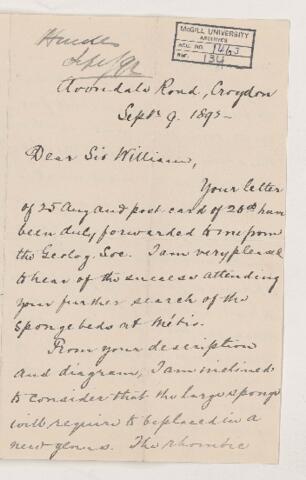 Hinde
Sept/92
McGILL UNIVERSITY
ARCHIVES
ACC. NO. 1463
REF. 134
Avondale Road, Croydon
Septr 9. 1892
Dear Sir William,
Your letter
of 25 Aug and post card of 26th have
been duly forwarded to me from
the Geolog. Soc. I am very pleased
to hear of the success attending
your further search of the
sponge beds at Métis.
From your description
and diagram, I am inclined
to consider that the large sponge
will require to be placed in a
new genus. The rhombic